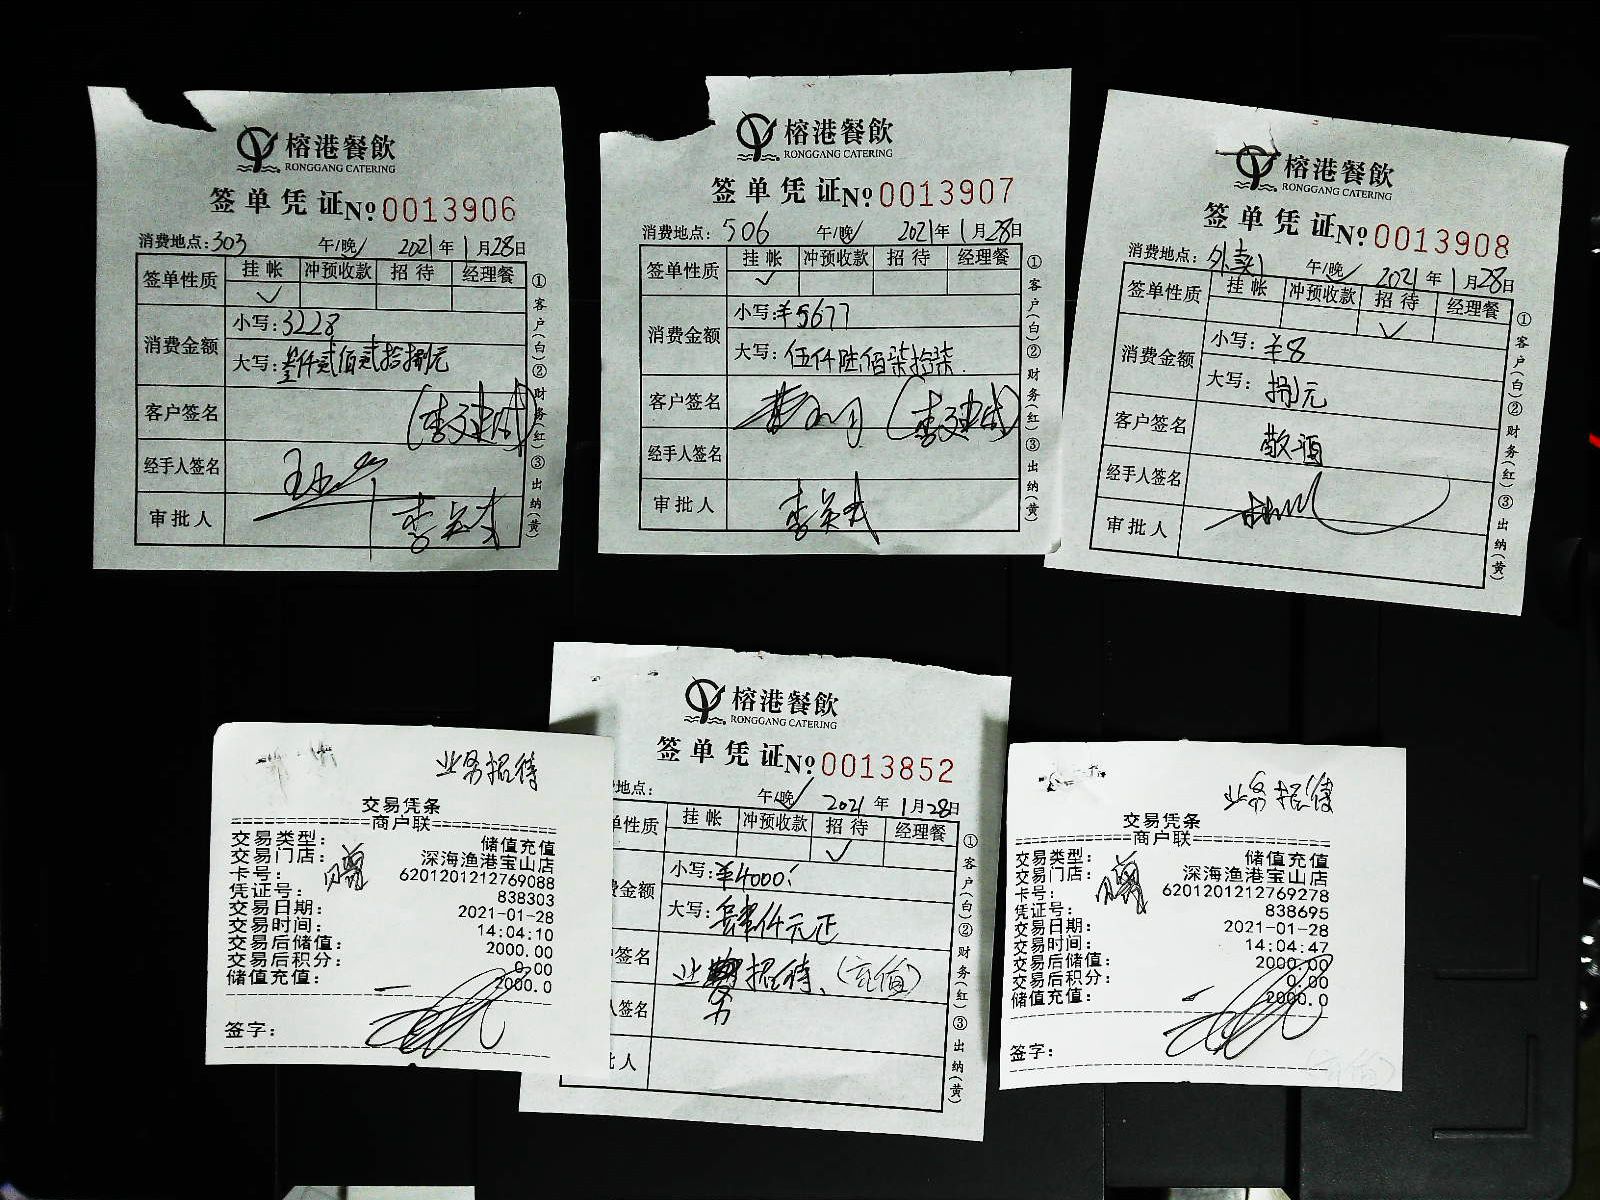 榕港餐飲
RONGGANG CATERING
签单凭证№0013906
消费地点:303 午/晚✓ 2021年1月28日
签单性质 挂帐 冲预收款 招待 经理餐
✓
消费金额 小写:3228
大写:叁仟贰佰贰拾捌元
客户签名
经手人签名
审批人
①客户(白)②财务(红)③出纳(黄)
榕港餐飲
RONGGANG CATERING
签单凭证№0013907
消费地点:506 午/晚✓ 2021年1月28日
签单性质 挂帐 冲预收款 招待 经理餐
✓
消费金额 小写:¥5677
大写:伍仟陆佰柒拾柒
客户签名
经手人签名
审批人
①客户(白)②财务(红)③出纳(黄)
榕港餐飲
RONGGANG CATERING
签单凭证№0013908
消费地点:外卖 午/晚✓ 2021年1月28日
签单性质 挂帐 冲预收款 招待 经理餐
✓
消费金额 小写:¥8
大写:捌元
客户签名 敬酒
经手人签名
审批人
①客户(白)②财务(红)③出纳(黄)
业务招待
交易凭条
商户联
交易类型: 储值充值
交易门店: 深海渔港宝山店
卡号: 6201201212769088
凭证号: 838303
交易日期: 2021-01-28
交易时间: 14:04:10
交易后储值: 2000.00
交易后积分: 0.00
储值充值: 2000.0
签字:
榕港餐飲
RONGGANG CATERING
签单凭证№0013852
地点: 午/晚✓ 2021年1月28日
单性质 挂帐 冲预收款 招待 经理餐
✓
费金额 小写:¥4000
大写:肆仟元正
签名 业务招待、(充值)
人签名
人
①客户(白)②财务(红)③出纳(黄)
业务招待
交易凭条
商户联
交易类型: 储值充值
交易门店: 深海渔港宝山店
卡号: 6201201212769278
凭证号: 838695
交易日期: 2021-01-28
交易时间: 14:04:47
交易后储值: 2000.00
交易后积分: 0.00
储值充值: 2000.0
签字: